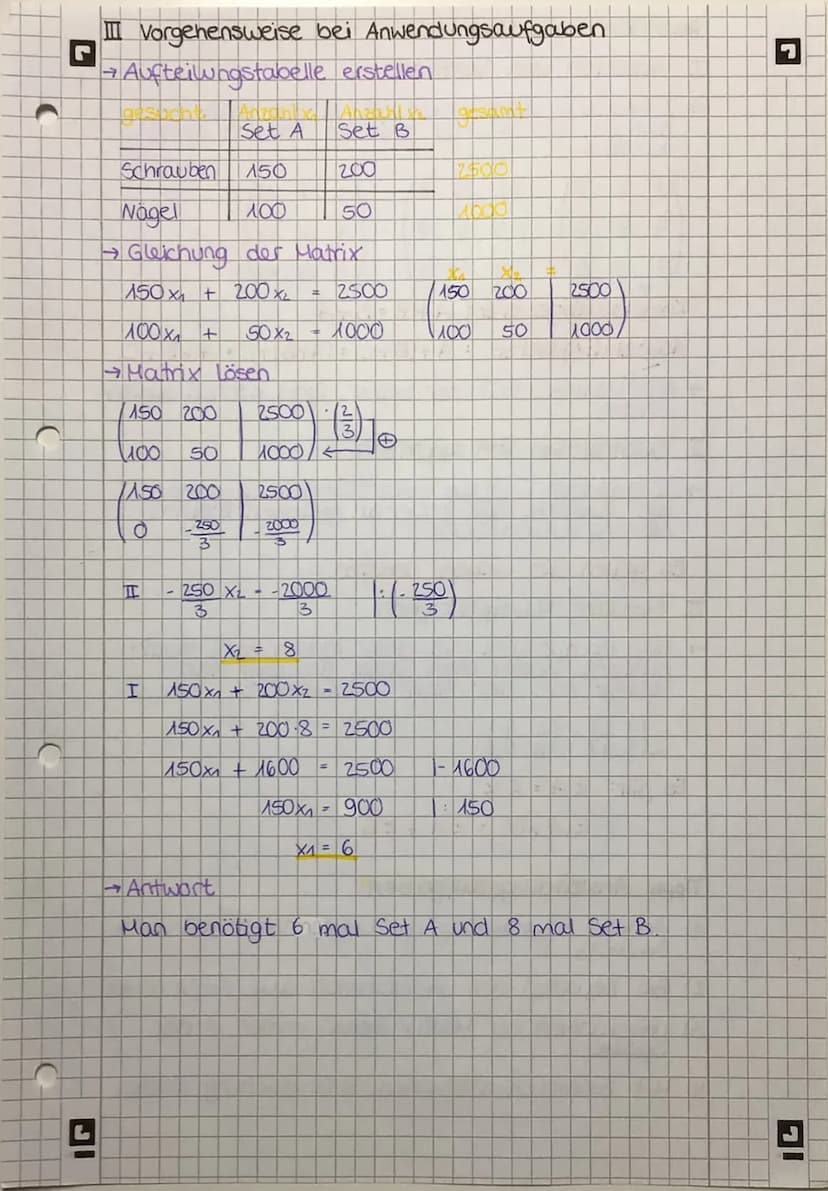 III Vorgehensweise bei Anwendungsaufgaben
→ Aufteilungstabelle erstellen
gesucht Anzahl x₁ Anzahl x₂ gesamt
Set A Set B
Schrauben 150 200 2500
Nägel 100 50 1000
→ Gleichung der Matrix
x₁ x₂ =
150x₁ + 200x₂ = 2500 (150 200 | 2500)
100x₁ + 50x₂ = 1000 (100 50 | 1000)
→ Matrix lösen
(150 200 | 2500) · (2/3)
(100 50 | 1000) ← ⊕
(150 200 | 2500)
(0 -250/3 | -2000/3)
II -250/3 x₂ = -2000/3 |:(-250/3)
x₂ = 8
I 150x₁ + 200x₂ = 2500
150x₁ + 200·8 = 2500
150x₁ + 1600 = 2500 |- 1600
150x₁ = 900 | : 150
x₁ = 6
→ Antwort
Man benötigt 6 mal Set A und 8 mal Set B.